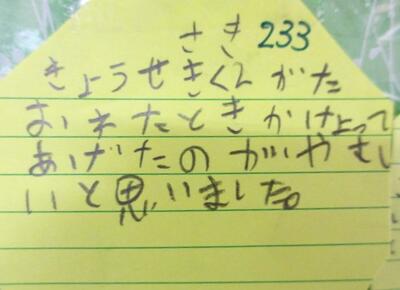 さき 233
きょうせきくんがた
おれたときかけよって
あげたのがやさし
いと思いました。